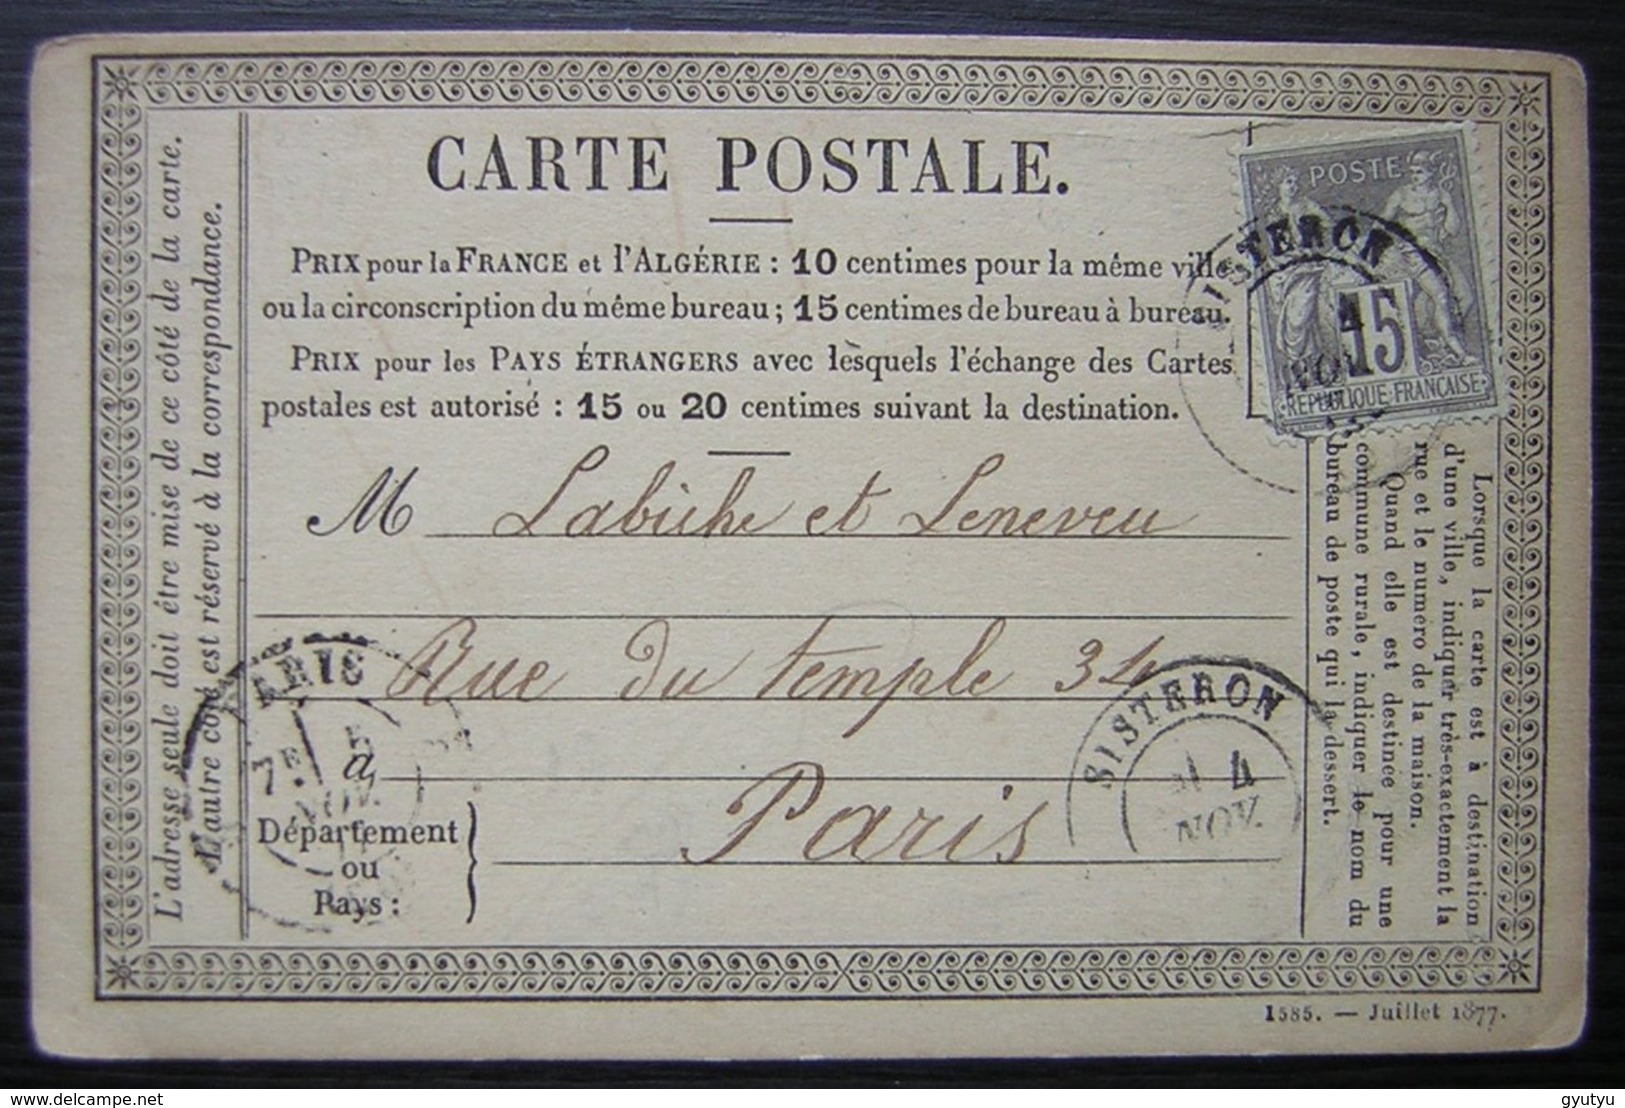 CARTE POSTALE.
PRIX pour la FRANCE et l'ALGÉRIE : 10 centimes pour la même ville
ou la circonscription du même bureau ; 15 centimes de bureau à bureau.
PRIX pour les PAYS ÉTRANGERS avec lesquels l'échange des Cartes
postales est autorisé : 15 ou 20 centimes suivant la destination.
M Labiche et Leneveu
Rue du temple 34
à
Paris
Département
ou
Pays :
L'adresse seule doit être mise de ce côté de la carte.
L'autre côté est réservé à la correspondance.
POSTE
15
REPUBLIQUE FRANCAISE
SISTERON
4
NOV
Lorsque la carte est à destination
d'une ville, indiquer très-exactement la
rue et le numéro de la maison.
Quand elle est destinée pour une
commune rurale, indiquer le nom du
bureau de poste qui la dessert.
PARIS
7E 5
NOV.
SISTERON
4
NOV.
1585. — Juillet 1877.
delcampe.net
gyutyu